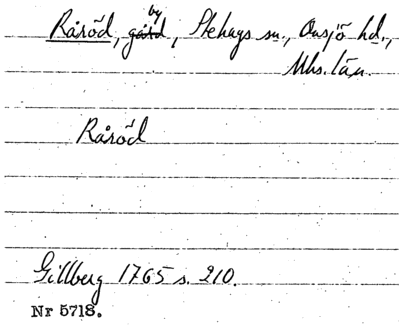 Råröd, gård by, Stehags sn., Onsjö hd.,
Mhs. län.
Råröd
Gillberg 1765 s. 210.
Nr 5718.